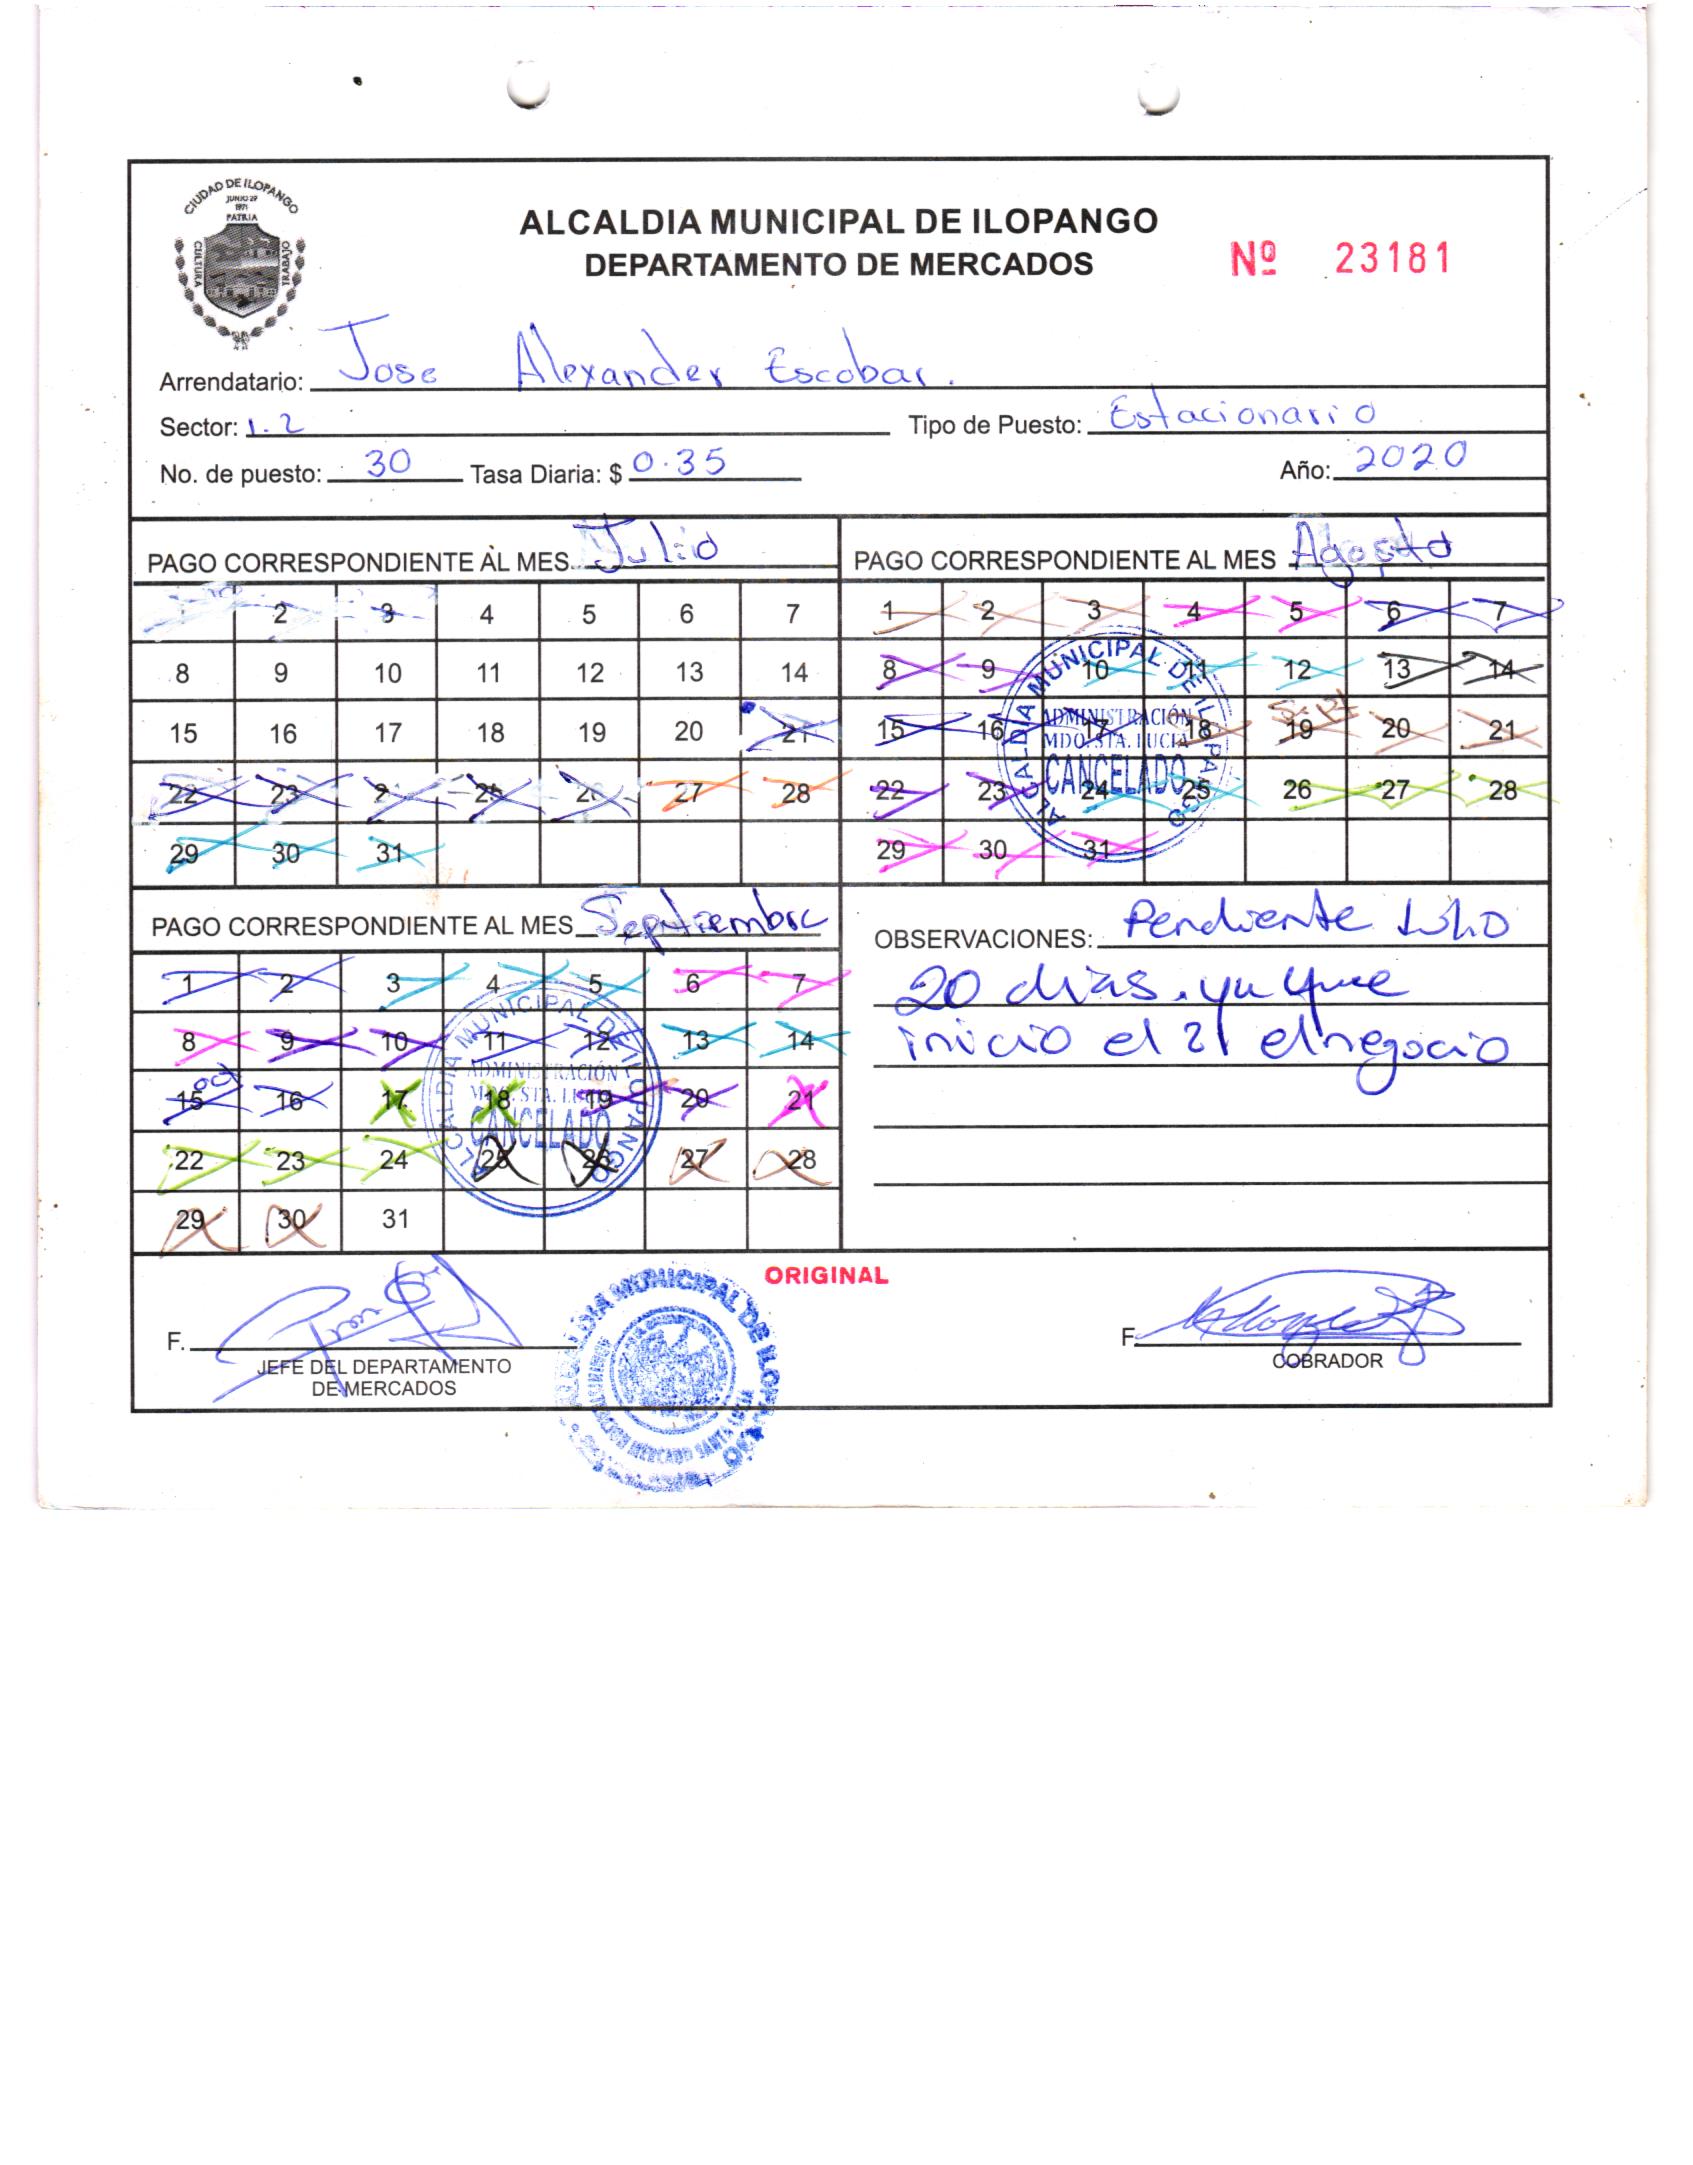 CIUDAD DE ILOPANGO
JUNIO 29
1971
PATRIA
CULTURA
TRABAJO
ALCALDIA MUNICIPAL DE ILOPANGO
DEPARTAMENTO DE MERCADOS
Nº 23181
Arrendatario: Jose Alexander Escobar.
Sector: 1.2 Tipo de Puesto: Estacionario
No. de puesto: 30 Tasa Diaria: $ 0.35 Año: 2020
PAGO CORRESPONDIENTE AL MES Julio
2 3 4 5 6 7
8 9 10 11 12 13 14
15 16 17 18 19 20 21
22 23 24 25 26 27 28
29 30 31
PAGO CORRESPONDIENTE AL MES Agosto
1 2 3 4 5 6 7
8 9 10 11 12 13 14
15 16 17 18 19 20 21
22 23 24 25 26 27 28
29 30 31
ALCALDIA MUNICIPAL DE ILOPANGO
ADMINISTRACIÓN
MDO. STA. LUCIA
CANCELADO
PAGO CORRESPONDIENTE AL MES Septiembre
1 2 3 4 5 6 7
8 9 10 11 12 13 14
15 16 17 18 19 20 21
22 23 24 25 26 27 28
29 30 31
ALCALDIA MUNICIPAL DE ILOPANGO
ADMINISTRACIÓN
MDO. STA. LUCIA
CANCELADO
OBSERVACIONES: Pendiente Julio
20 dias. ya que
inicio el 21 el negocio
F.
JEFE DEL DEPARTAMENTO
DE MERCADOS
ORIGINAL
ALCALDIA MUNICIPAL DE ILOPANGO
ADMINISTRACION MERCADO SANTA LUCIA
F.
COBRADOR